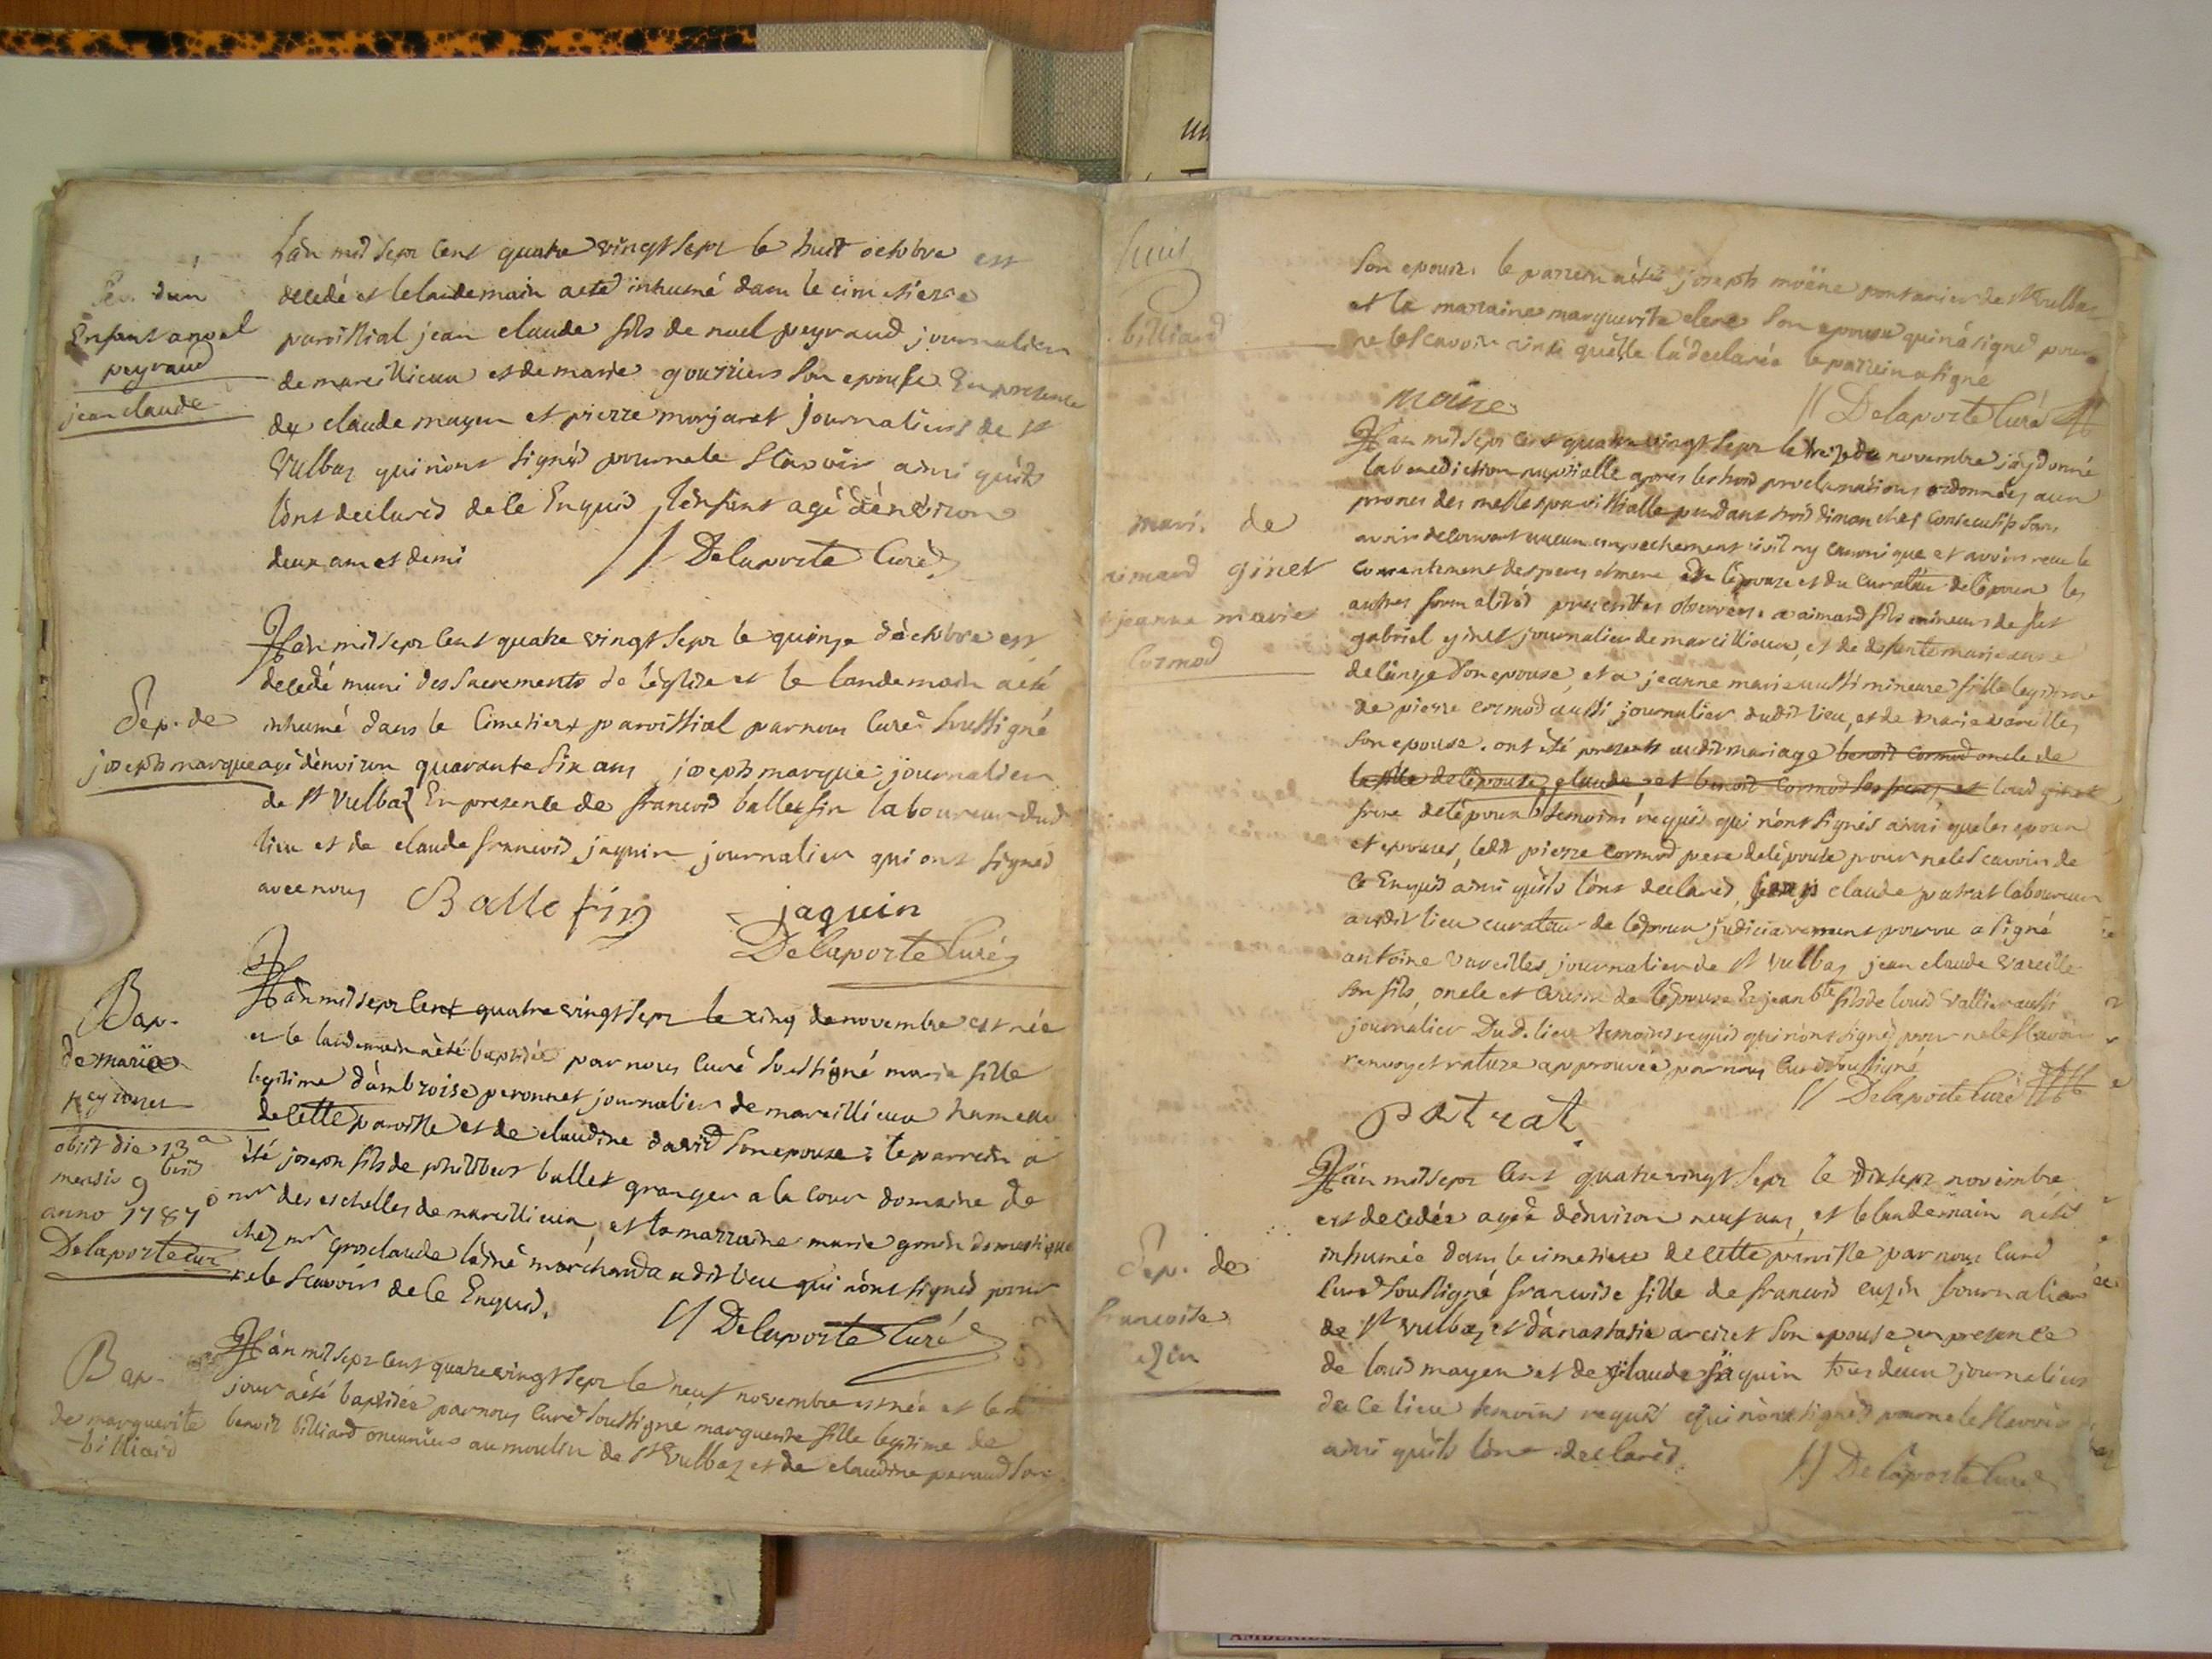 Lan mil sept cent quatre vingt sept le huit octobre est
decedé et le landemain a eté inhumé dans le cimetierre
paroissial jean claude fils de noel peyraud journalier
de marcillieux et de marie gourriers son epouse En presence
de claude mayen et pierre morjaret journaliers de st
Vulbaz qui n'ont signés pour ne le scavoir ainsi qu'ils
l'ont declarés de ce Enquis l'enfant agé d'environ
deux ans et demi // Delaporte Curé
Enfant
peyraud
jean claude
L'an mil sept cent quatre vingt sept le quinze d'octobre est
decedé muni des sacrements de l'église et le landemain a été
inhumé dans le cimetiere paroissial par nous Curé soussigné
agé d'environ quarante six ans joseph marque journalier
de st Vulbaz En presence de francois ballesin laboureur dud
lieu et de claude francois jaquin journalier qui ont signés
avec nous Ballesin jaquin
Delaporte Curé
Sep. de
joseph marque
L'an mil sept cent quatre vingt sept le cinq de novembre est née
et le landemain a été baptisée par nous Curé soussigné marie fille
legitime d'ambroise peronnet journalier de marcillieux hameau
de cette paroisse et de claudine david son epouse : le parrein a
été joseph fils de philibert ballet granger a la cour domaine de
mr des eschelles de marcillieux, et la marraine marie gonin domestique
chez mr grosclaude l'ainé marchand audit lieu qui n'ont signés pour
ne le scavoir de ce Enquis.
// Delaporte Curé
Bap.
de marie
peyronet
obiit die 13a
mensis 9bris
anno 1787
Delaporte cur
L'an mil sept cent quatre vingt sept le neuf novembre est née et le
jour a été baptisée par nous Curé soussigné marguerite fille legitime de
benoit billiard meunier au moulin de st Vulbaz et de claudine peraud son
Bap.
de marguerite
billiard
suit
billiard
son epouse. le parrein a été joseph moëne pontanier de st Vulbas
et la marraine marguerite clere son epouse qui n'a signé pour
ne le scavoir ainsi qu'elle l'a declarée le parrein a signé
moëne // Delaporte Curé
L'an mil sept cent quatre vingt sept le treize de novembre j'ay donné
la benediction nuptialle après les trois proclamations ordonnées aux
prones des messes paroissialle pendant trois dimanches consecutifs sans
avoir decouvert aucun empechement civil ny canonique et avoir receu le
consentement des peres et mere de l'epouse et du curateur de l'epoux les
autres formalités prescrittes observées. a aimard fils mineur de feu
gabriel ginet journalier de marcillieux, et de defunte marie anne
de lange son epouse, et a jeanne marie aussi mineure fille legitime
de pierre cormod aussi journalier dudit lieu, et de marie vareilles
son epouse. ont été presents audit mariage benoit cormod oncle de
la fille de l'epouse, claude et benoit cormod ses freres et louis ginet
frere de l'epoux temoins requis qui n'ont signés ainsi que les epoux
et epouses, ledit pierre cormod pere de l'epouse pour ne le scavoir de
ce Enquis ainsi qu'ils l'ont declarés, claude patrat laboureur
audit lieu curateur de l'epoux judiciairement pourvu a signé
antoine vareilles journalier de st Vulbaz jean claude vareille
son fils, oncle et cousin de l'epouse Et jean bte fils de louis vallier aussi
journalier Dud. lieu temoins requis qui n'ont signés pour ne le scavoir
renvoy et rature approuvée par nous Curé soussigné
// Delaporte Curé
patrat
mari. de
aimard ginet
jeanne marie
Cormod
L'an mil sept cent quatre vingt sept le dix sept novembre
est decedée agée d'environ neuf ans, et le landemain a été
inhumée dans le cimetiere de cette paroisse par nous Curé
Curé soussigné francoise fille de francois cuzin journalier
de st Vulbaz et d'anastasie arciet son epouse en presence
de louis mayen et de claude jaquin tous deux journaliers
de ce lieu temoins requis qui n'ont signés pour ne le scavoir
ainsi qu'ils l'ont declarés.
// Delaporte Curé
Sep. de
francoise